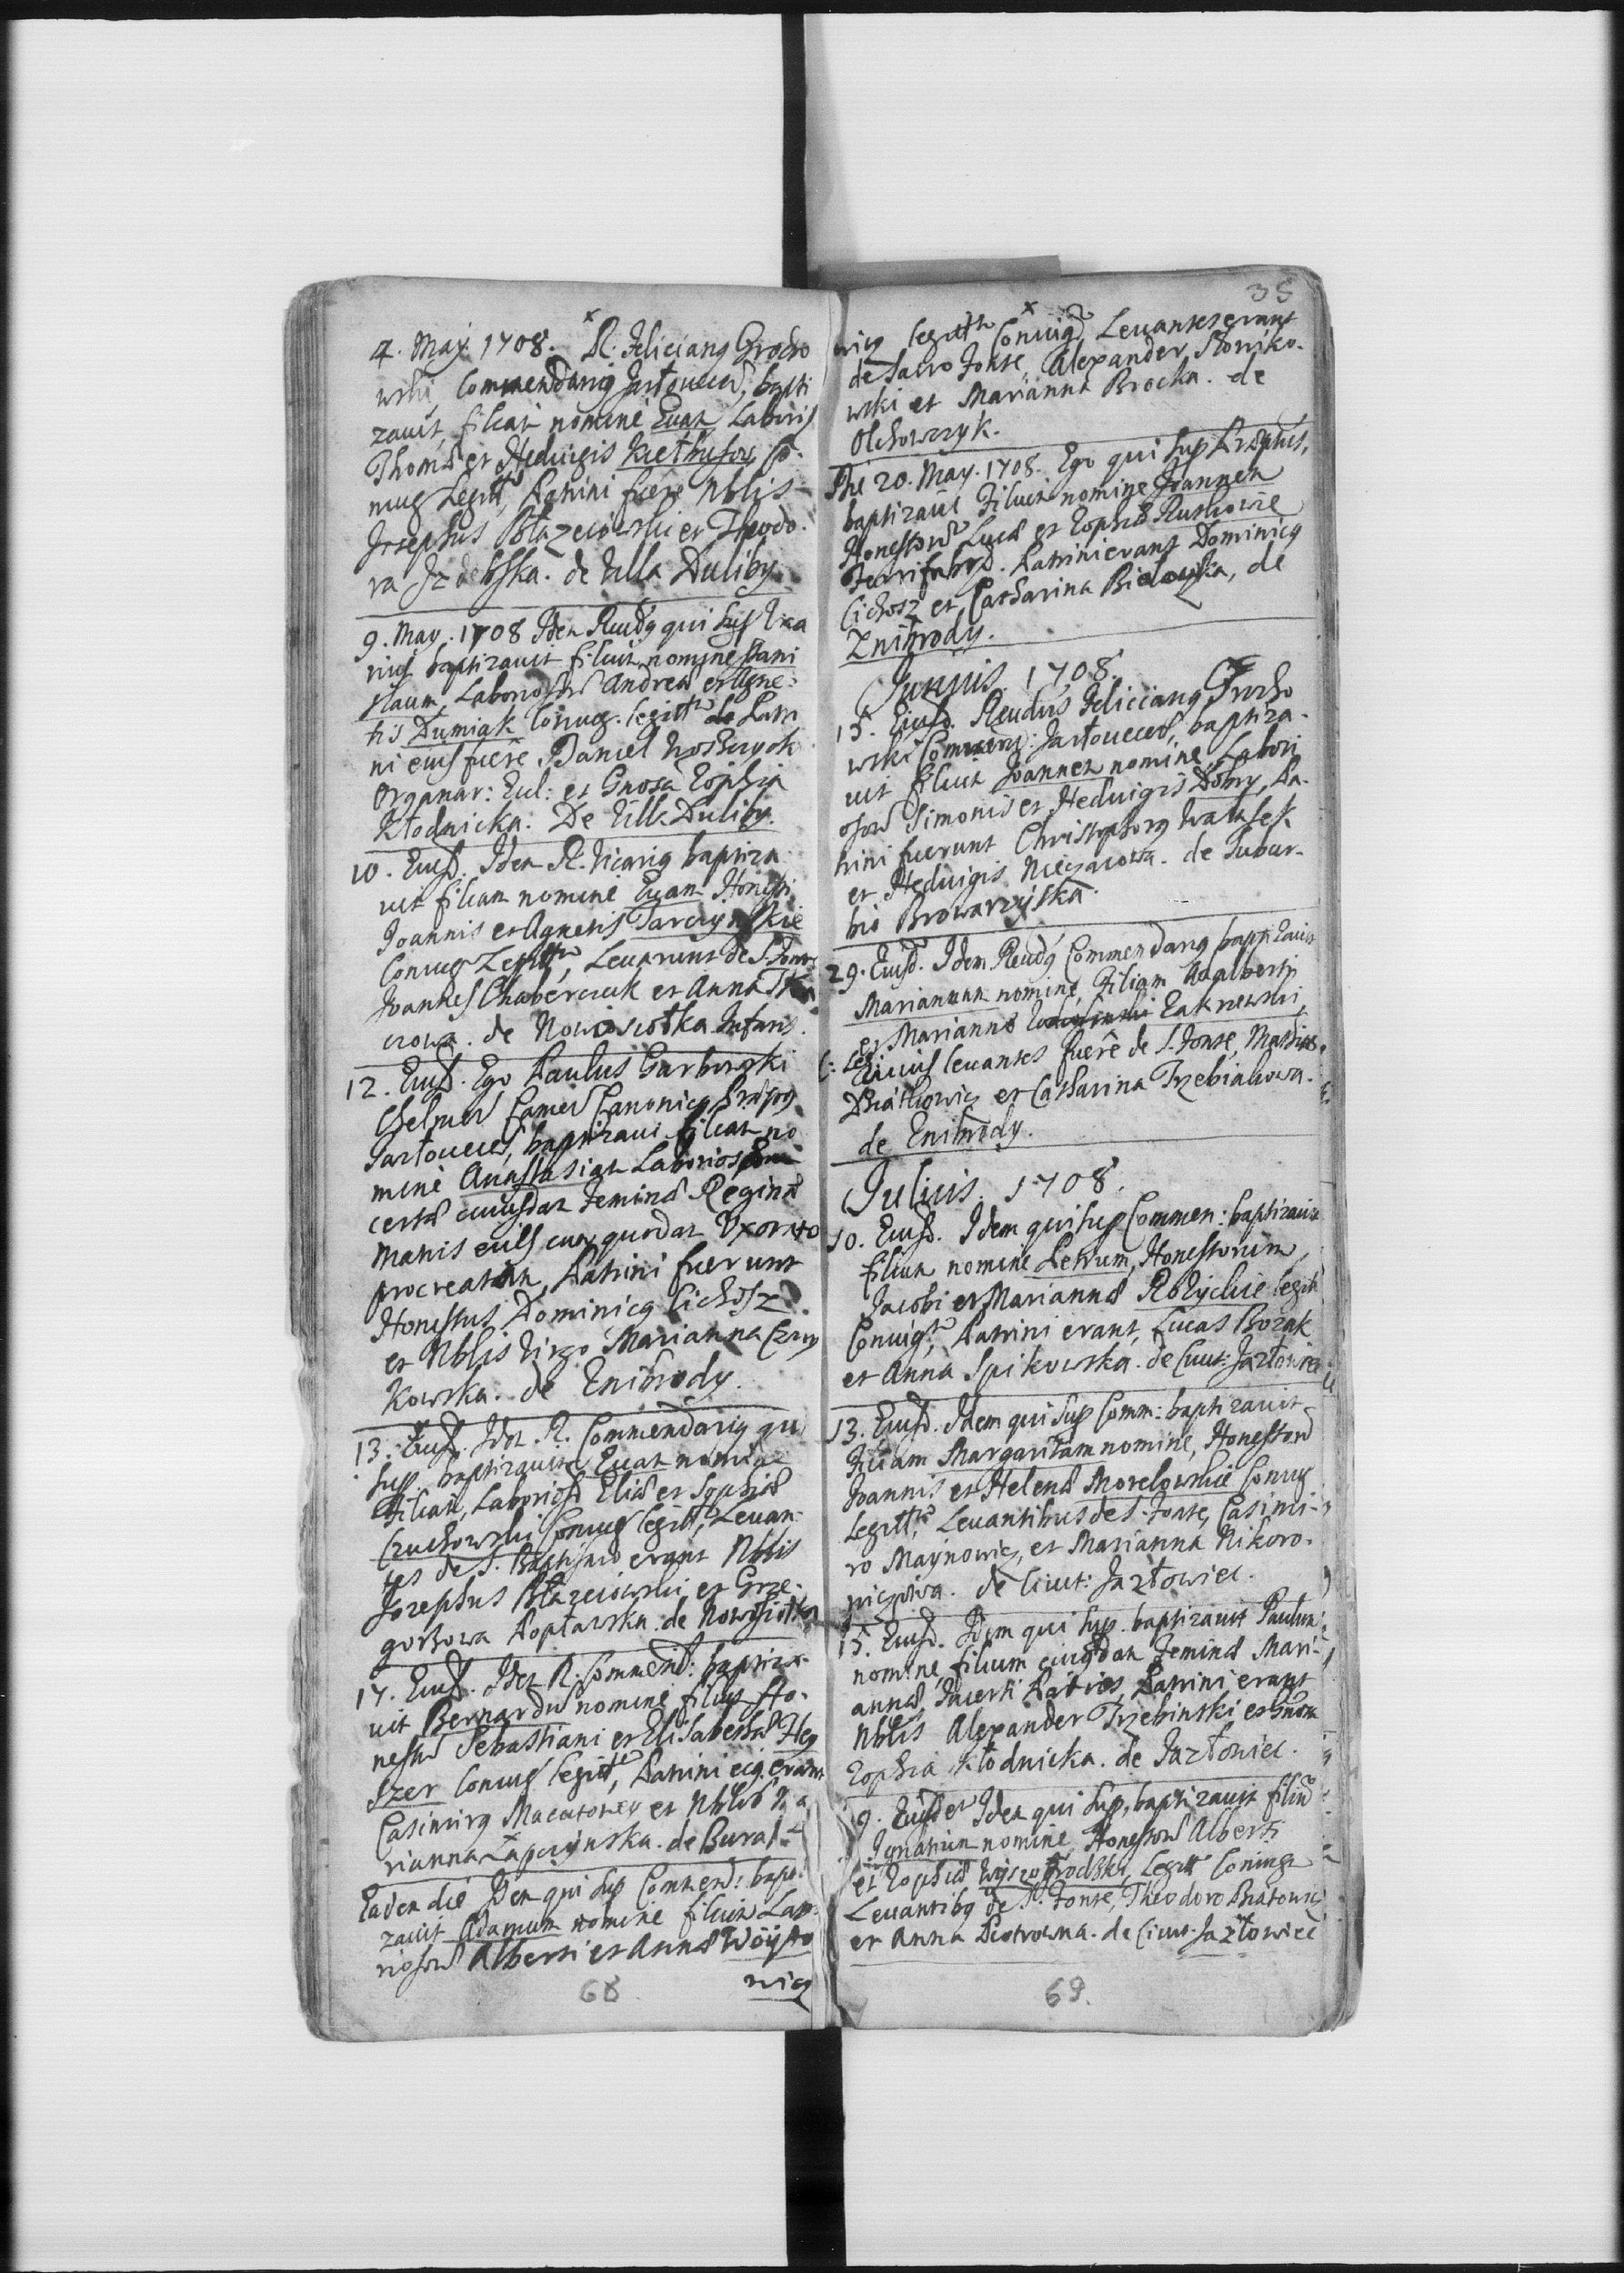 4. May 1708. R. Feliciang Grocho
wski, Commendarig Jasłoveceń, bapti
zavit, filiam nomine Evam Laboris
Thomæ et Hedvigis
niug Legitt, Patrini fuere Nblis
Josephus Błazeiowski et Theodo-
ra Izdebska. de Villa Duliby
9. May. 1708 Idem Rndg qui sup Vica
rius baptizavit filium nomine Stani
slaum, Laborios Andreæ et Agne-
tis Dumiak Coniug. legitt de Patri
ni eius fuere Daniel
Organar: Eccl: et Gnosa Zophia
Kłodnicka. De Villa Duliby.
10. Eiusd. Idem R. Vicarig baptiza
vit filiam nomine Evam Honesti
Joannis et Agnetis Tarczynskie
Coniug Legitt, Levarunt de S. Fonte
Joannes Chaberczuk et Anna
crowa. de Nowosiołka
12. Eiusd. Ego Paulus Garbowski
Chelmeń Camen Canonicg
Jasłoveceń, baptizavi filiam no
mine Anastasiam Laborios
certæ cuiusdam Feminæ Reginæ
Matris eius cum quodam Uxorato
procreatam, Patrini fuerunt
Honestus Dominicg Cichosz
et Nblis Virgo Marianna Czay
kowska. de Znibrody.
13. Eiusd. Idem R. Commendarig qui
sup baptizavit Evam nomine
Filiam, Laborios Eliæ et Sophiæ
Czuchowski Coniug legitt, Levan-
tes de S. Baptismo erant Nblis
Josephus Błazeiowski et Grze-
gorzowa Popławska de Nowosiołka
17. Eiusd. Idem R. Commend: baptiza-
vit Bernardũ nomine filium Ho-
nestor Sebastiani et Elisabethæ Hey
szer Coniug legitt, Patrini eig erant
Casimirg et Nblis Ma
rianna Łapczynska. de
Eadem die Idem qui sup Commend: bapti
zavit Adamum nomine filium Labo
riosor Alberti et Annæ Woyto
wicz
68.
35
wicz legitt Coniug, Levantes erant
de Sacro Fonte, Alexander Słowiko-
wski et Marianna Brocka. de
Olchowczyk.
Die 20. May. 1708. Ego qui sup Præptus,
baptizavi Filium nomine Joannem
Honestor Lucæ et Zophiæ Ruskowie
Ferrifabror. Patrini erant Dominicg
Cichosz et Catharina Bielawska, de
Znibrody.
Junius. 1708.
15. Eiusd. Rendus Feliciang Grocho
wski Commend: Jasłoveceń, baptiza-
vit filium Joannem nomine, Labori
osor Simonis et Hedvigis Dobry, Pa-
trini fuerunt Christophorg
et Hedvigis de Subur-
bio Browarzyska.
29. Eiusd. Idem Rendg Commendarig baptizavit
Mariannam nomine, Filiam Adalberti
et Mariannæ Zakrzewski,
C: Leg
Civis levantes fuere de S. Fonte, Mathias
et Catharina Trzebiakowa.
de Znibrody.
Julius. 1708.
10. Eiusd. Idem qui sup Commen: baptizavit
filium nomine Petrum, Honestorum,
Jacobi et Mariannæ Rozyckie legitt
Coniug, Patrini erant, Lucas Bozak
et Anna Spikowska. de Civit: Jazłowiec
13. Eiusd. Idem qui sup Comm: baptizavit
Filiam Margaritam nomine, Honestor
Joannis et Helenæ Morelowskie Coniug
legitt, Levantibus de S. Fonte, Casimi-
ro Maynowicz, et Marianna Nikoro-
wiczowa. de Civit: Jazłowiec.
15. Eiusd. Idem qui sup. baptizavit Paulum
nomine, filium cuiusdam Feminæ Mari-
annæ, Incerti Patris, Patrini erant
Nblis Alexander Trzebinski et Gnosa
Zophia Kłodnicka. de Jazłowiec.
9. Eiusdem Idem qui sup, baptizavit filiũ
Ignatium nomine, Honestor Alberti
et Zophiæ Wyszogrodzki, Legitt Coniug
Levantibg de S. Fonte, Theodoro Bratowicz
et Anna Piotrowna. de Civit: Jazłowiec
69.